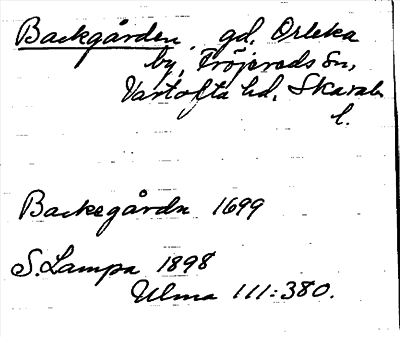 Backgården, gd. Orleka
by, Fröjereds Sn,
Vartofta hd, Skarab.
l.
Backegårdn 1699
S. Lampa 1898
Ulma 111:380.